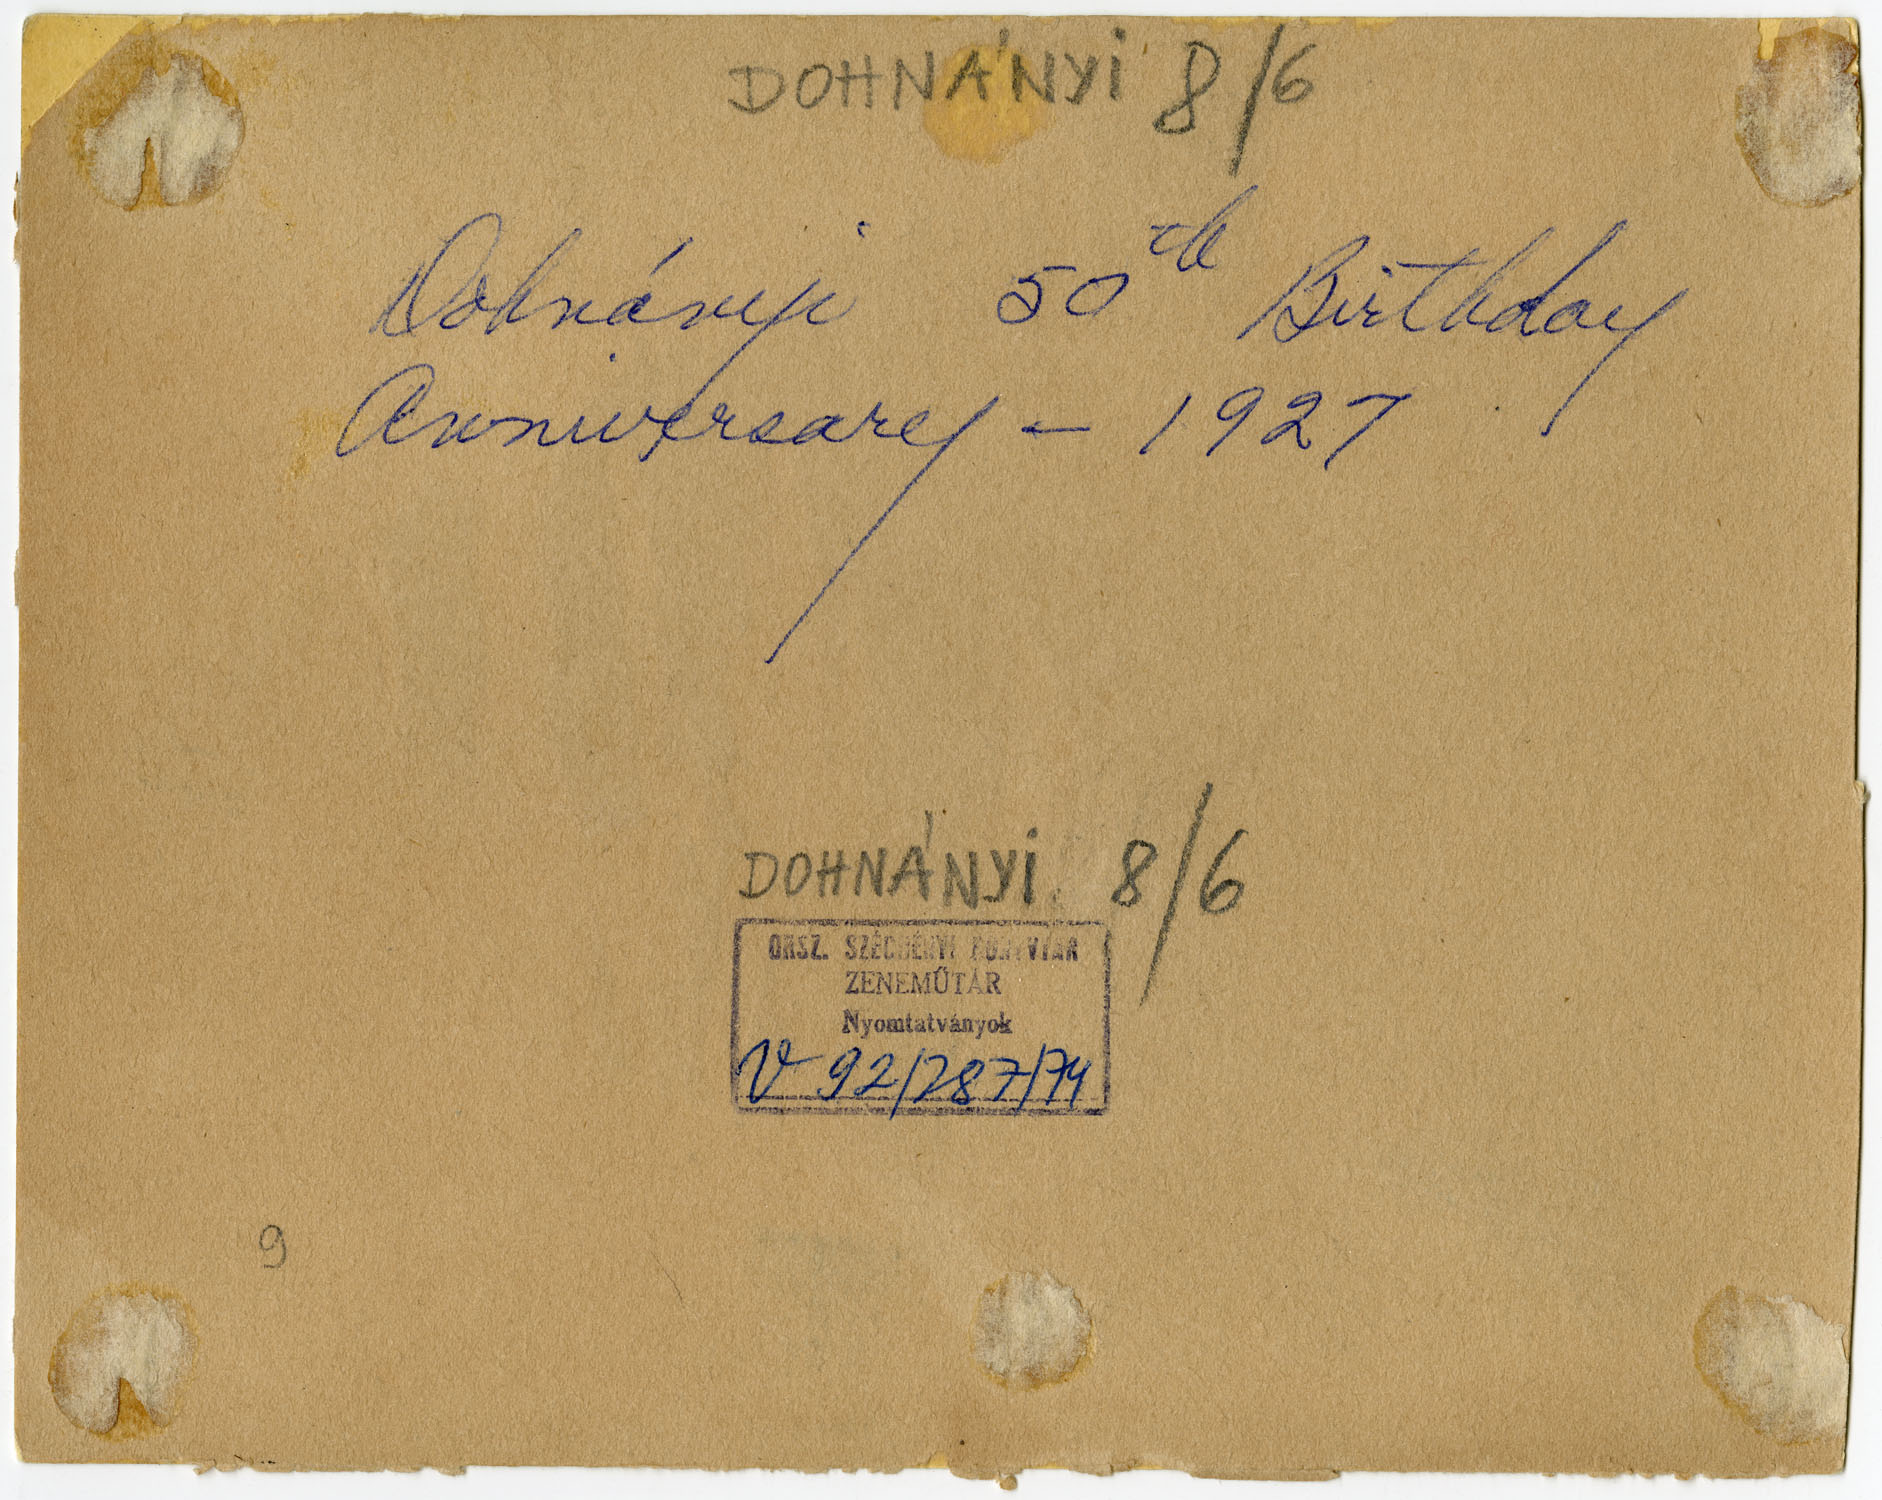 DOHNÁNYI 8/6
Dohnányi 50th Birthday
Anniversary – 1927
DOHNÁNYI 8/6
ORSZ. SZÉCHÉNYI KÖNYVTÁR
ZENEMŰTÁR
Nyomtatványok
V 92/787/74
9